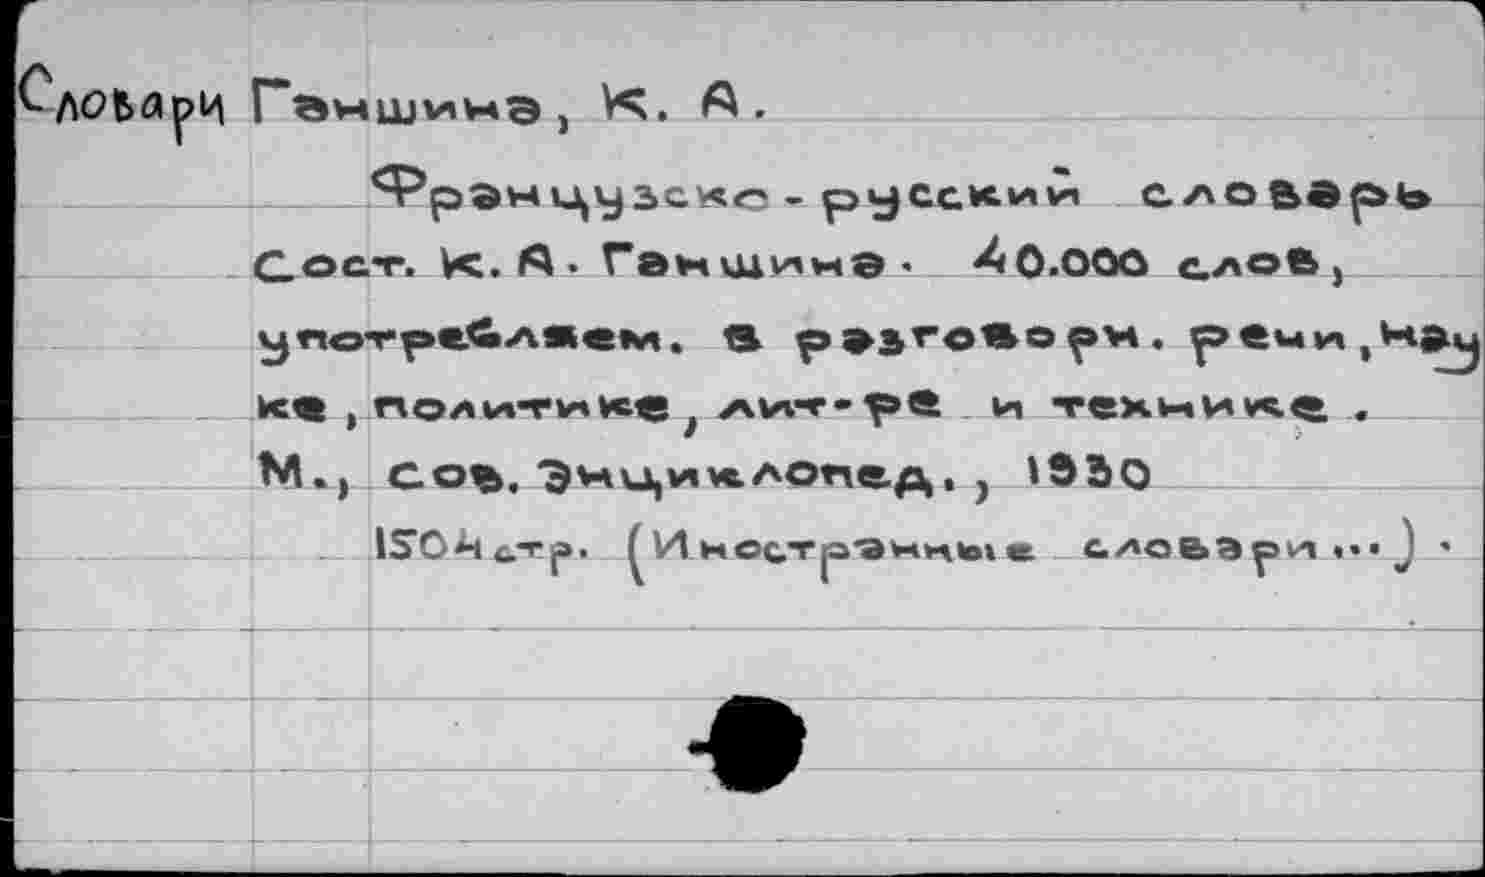 Словари Ганшина, К. А.
Французско-русский словарь
Сост. К. А. Ганшина. 40.000 слов,
употребляем. в разговорн. речи, нау
ке, политике, лит-ре и технике.
М., Сов. Энциклопед., 1930
стр. (Иностранные словари...).